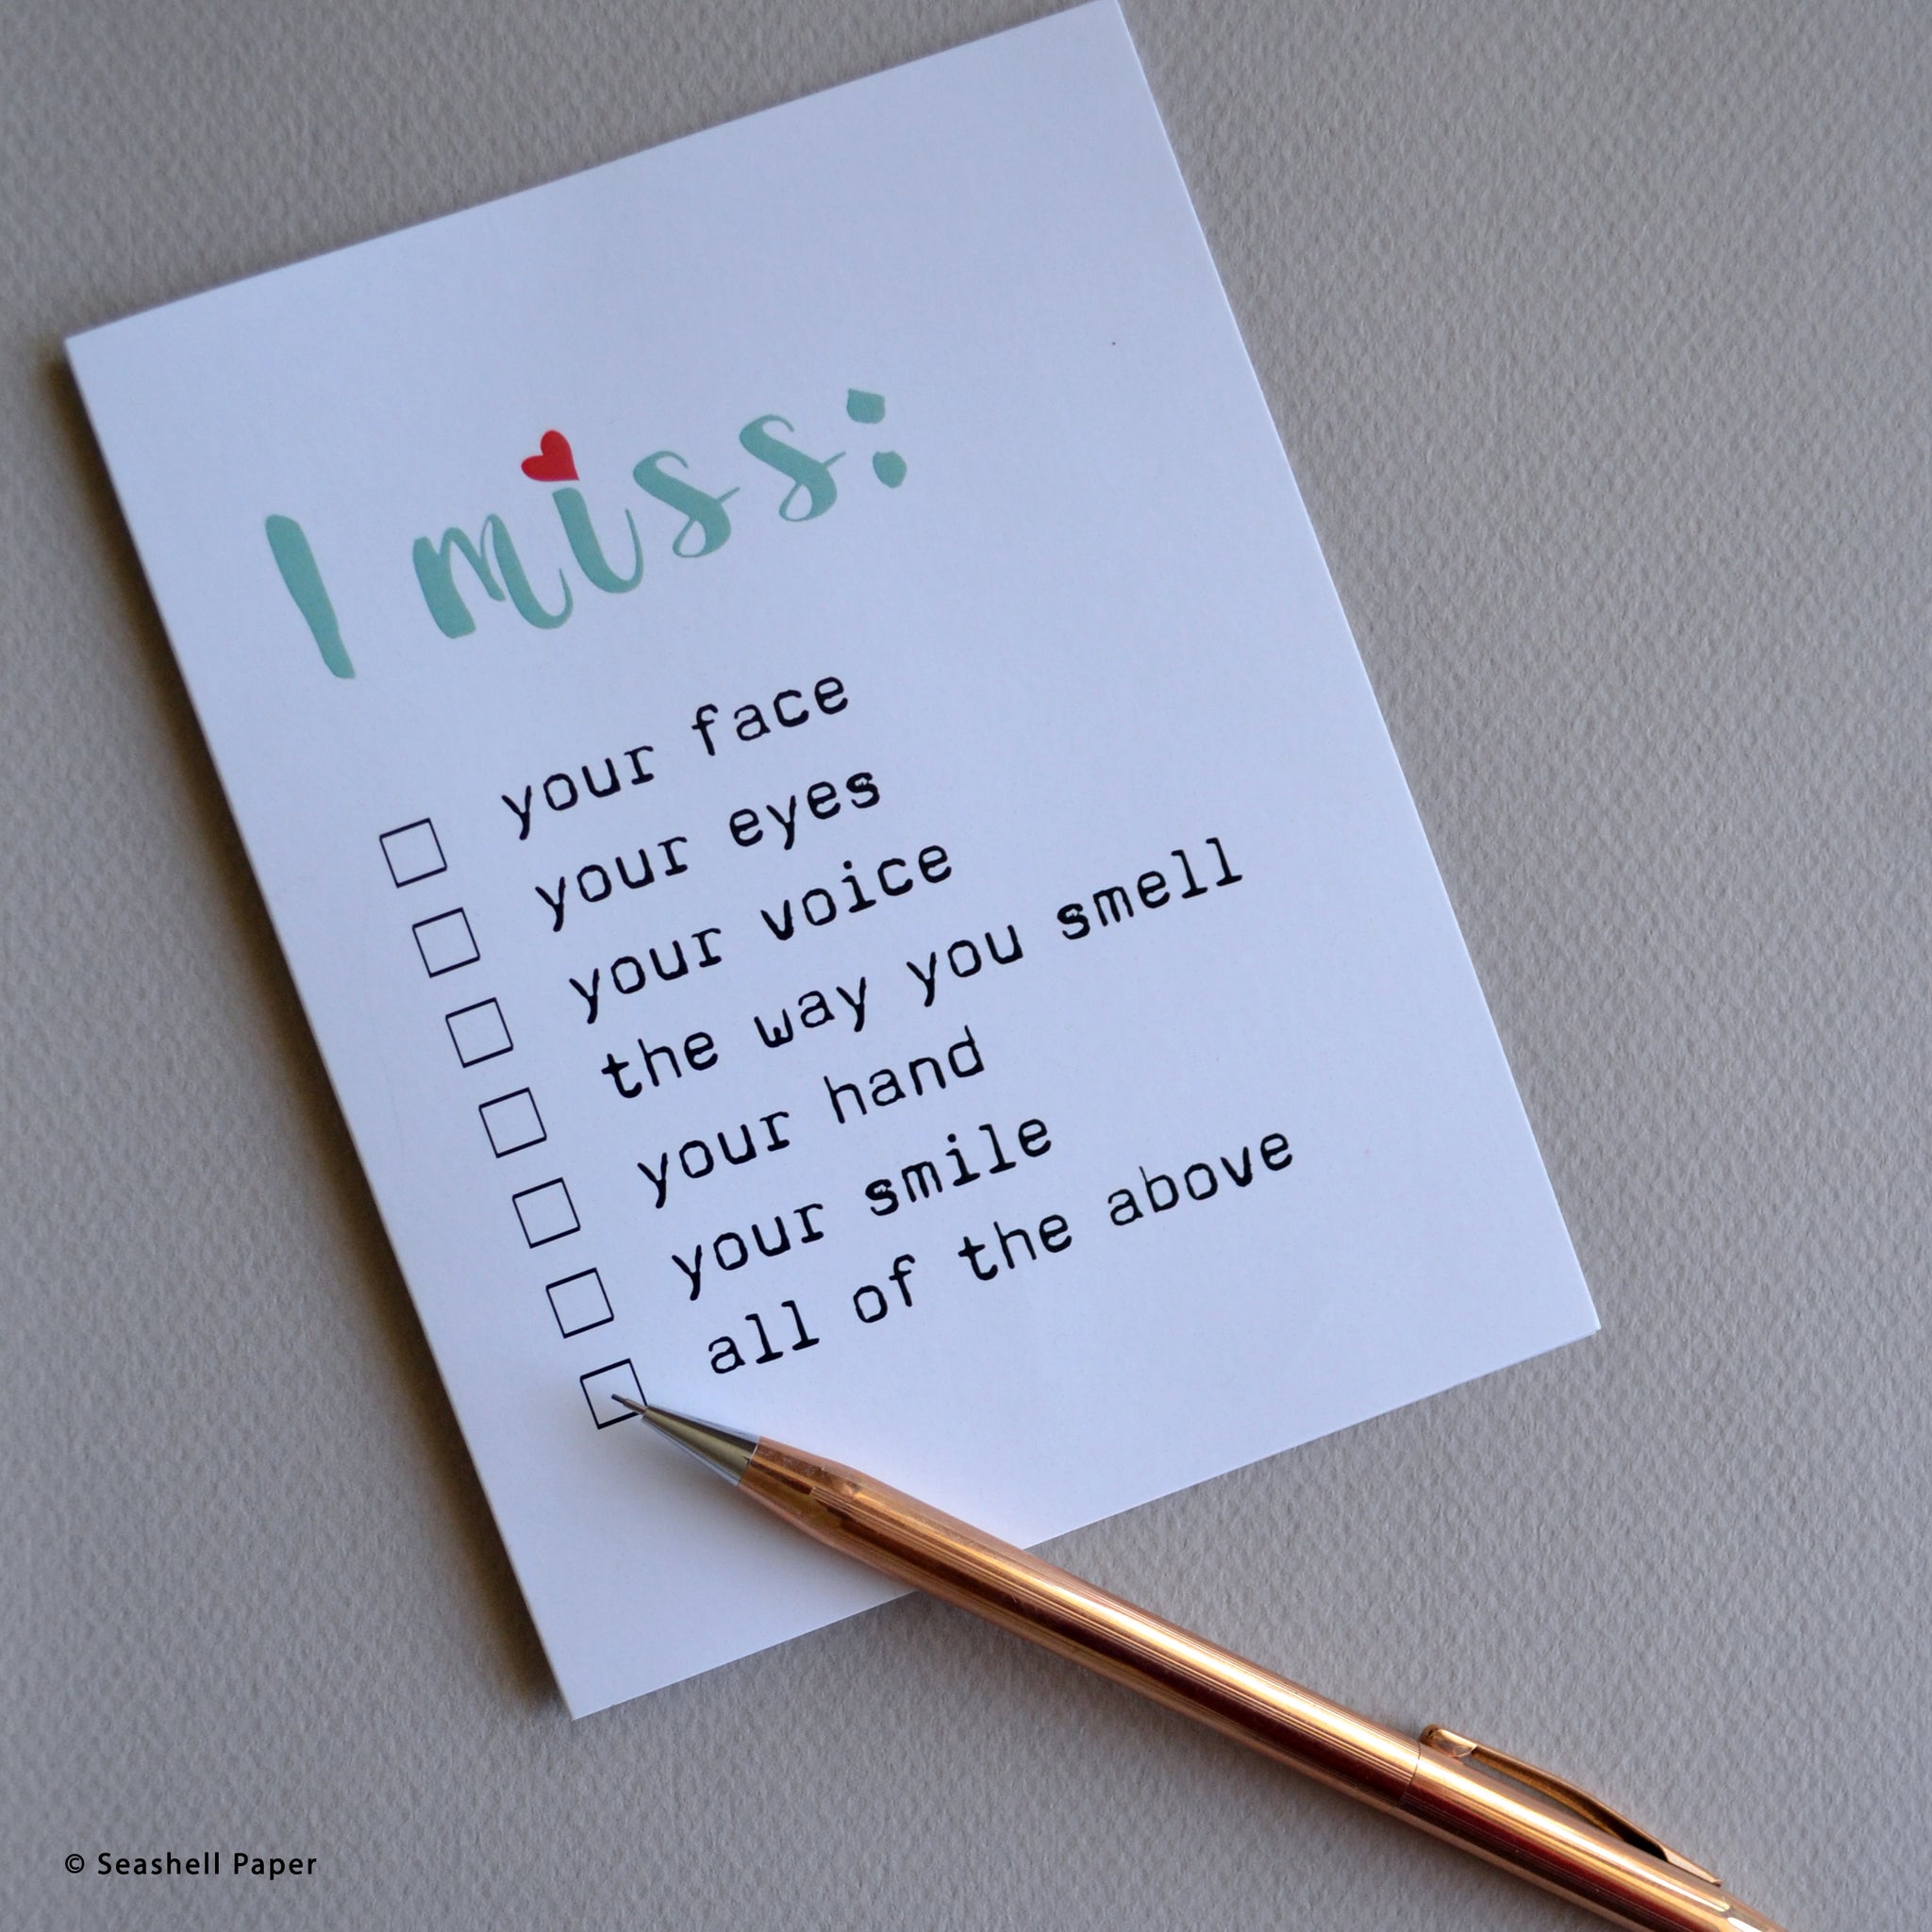 I miss:
your face
your eyes
your voice
the way you smell
your hand
your smile
all of the above
© Seashell Paper